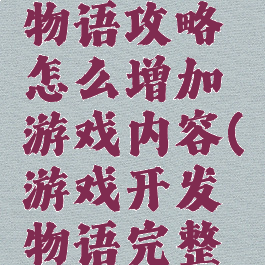 物语攻略
怎么增加
游戏内容(
游戏开发
物语完整